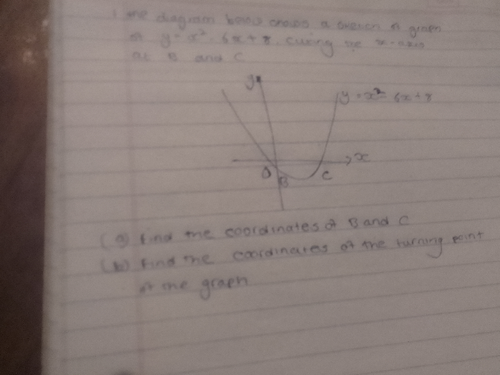 The diagram below shows a sketch of graph
of y = x² - 6x + 8 cutting the x-axis
at B and C
y
y = x² - 6x + 8
O
x
B
C
(a) Find the coordinates of B and C
(b) Find the coordinates of the turning point
of the graph